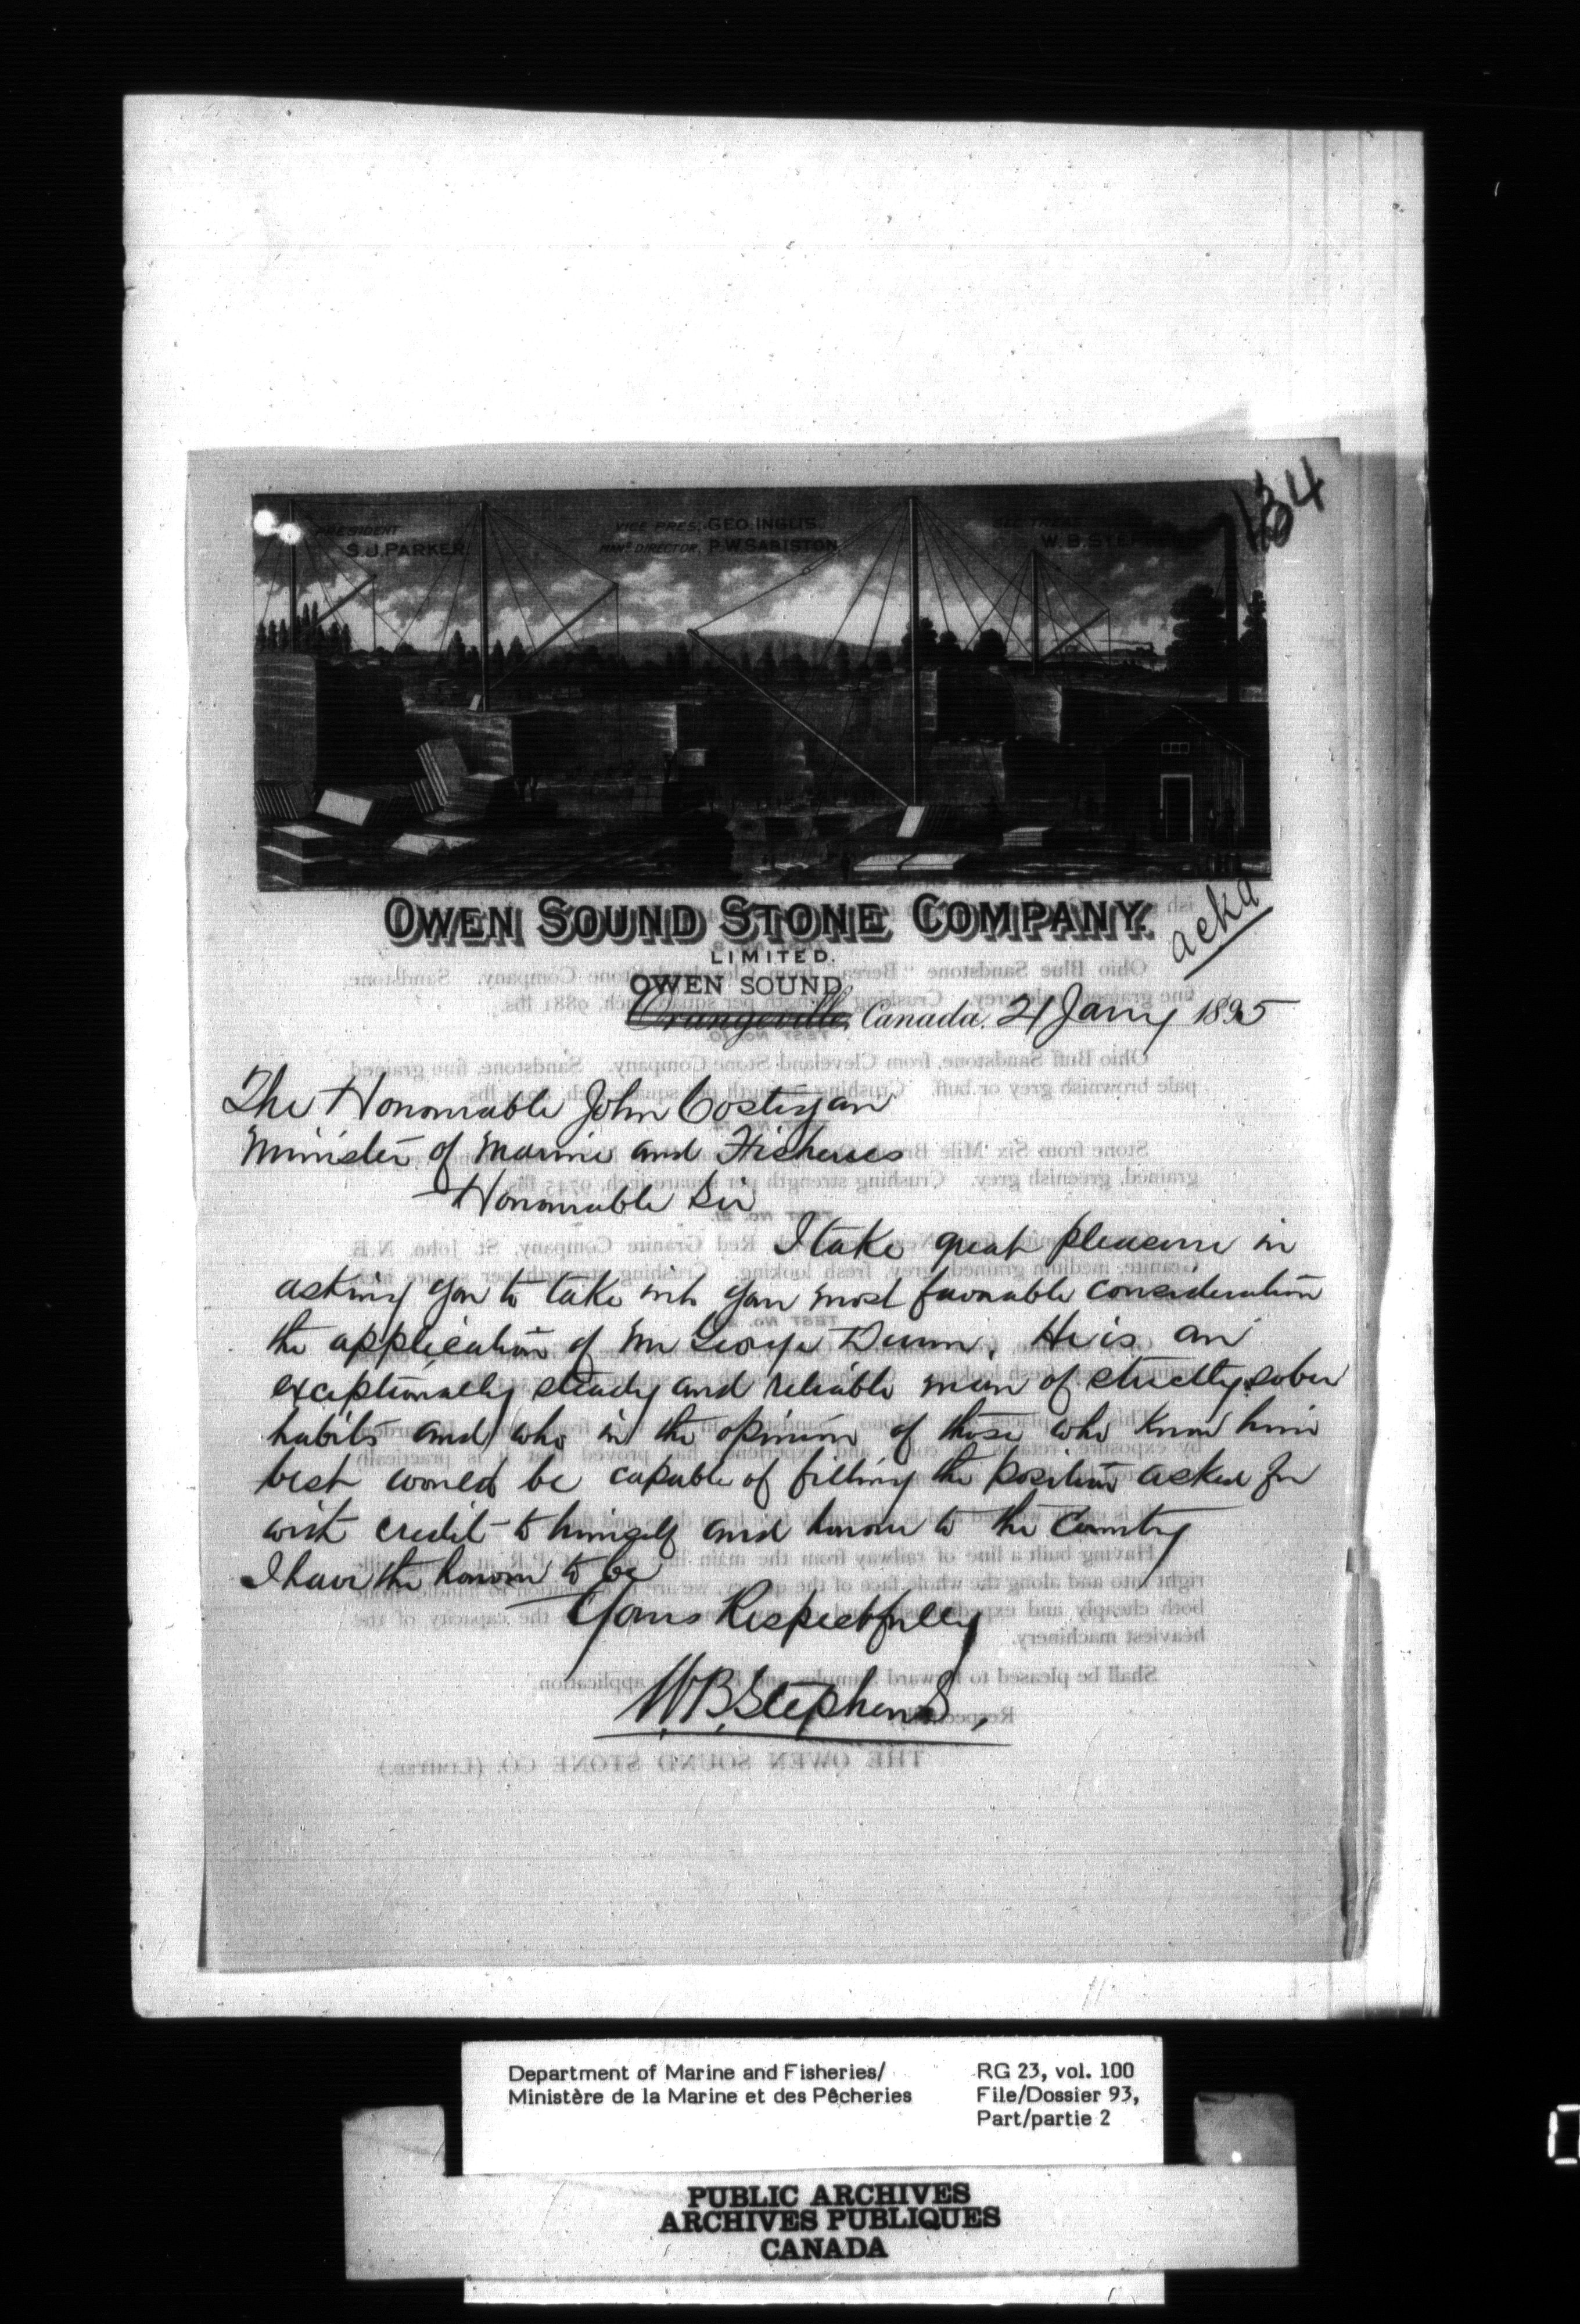 134
PRESIDENT
S.J. PARKER
VICE PRES. GEO. INGLIS.
MANG DIRECTOR, P.W. SABISTON.
SEC. TREAS.
W. B. STEPHENS
OWEN SOUND STONE COMPANY.
LIMITED.
ackd
OWEN SOUND,
Orangeville, Canada, 21 Jany 1895
The Honourable John Costigan
Minister of Marine and Fisheries
Honourable Sir
I take great pleasure in
asking you to take into your most favorable consideration
the application of Mr George Dunn. He is an
exceptionally steady and reliable man of strictly sober
habits and who in the opinion of those who know him
best would be capable of filling the position asked for
with credit to himself and honor to the Country
I have the honor to be
Yours Respectfully
W.B. Stephens,
Department of Marine and Fisheries/
Ministère de la Marine et des Pêcheries
RG 23, vol. 100
File/Dossier 93,
Part/partie 2
PUBLIC ARCHIVES
ARCHIVES PUBLIQUES
CANADA